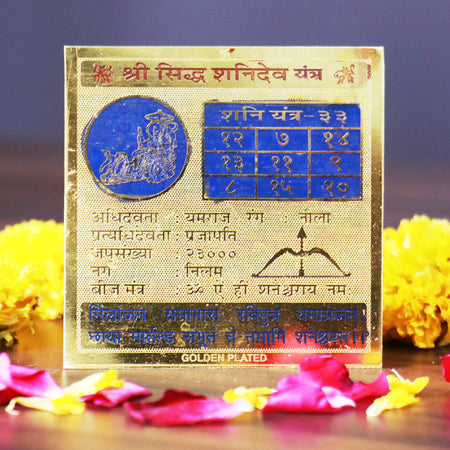 श्री सिद्ध शनिदेव यंत्र
शनि यंत्र-३३
१२ ७ १४
१३ ११ ९
८ १५ १०
अधिदेवता : यमराज रंग : नीला
प्रत्यधिदेवता : प्रजापति
जपसंख्या : २३०००
नग : निलम
बीज मंत्र : ॐ ऐं हीं शनैश्चराय नमः
निलांजन समाभासं रविपुत्रं यमाग्रजम।
छाया मार्तण्ड संभूतं तं नमामि शनैश्चरम।।
GOLDEN PLATED